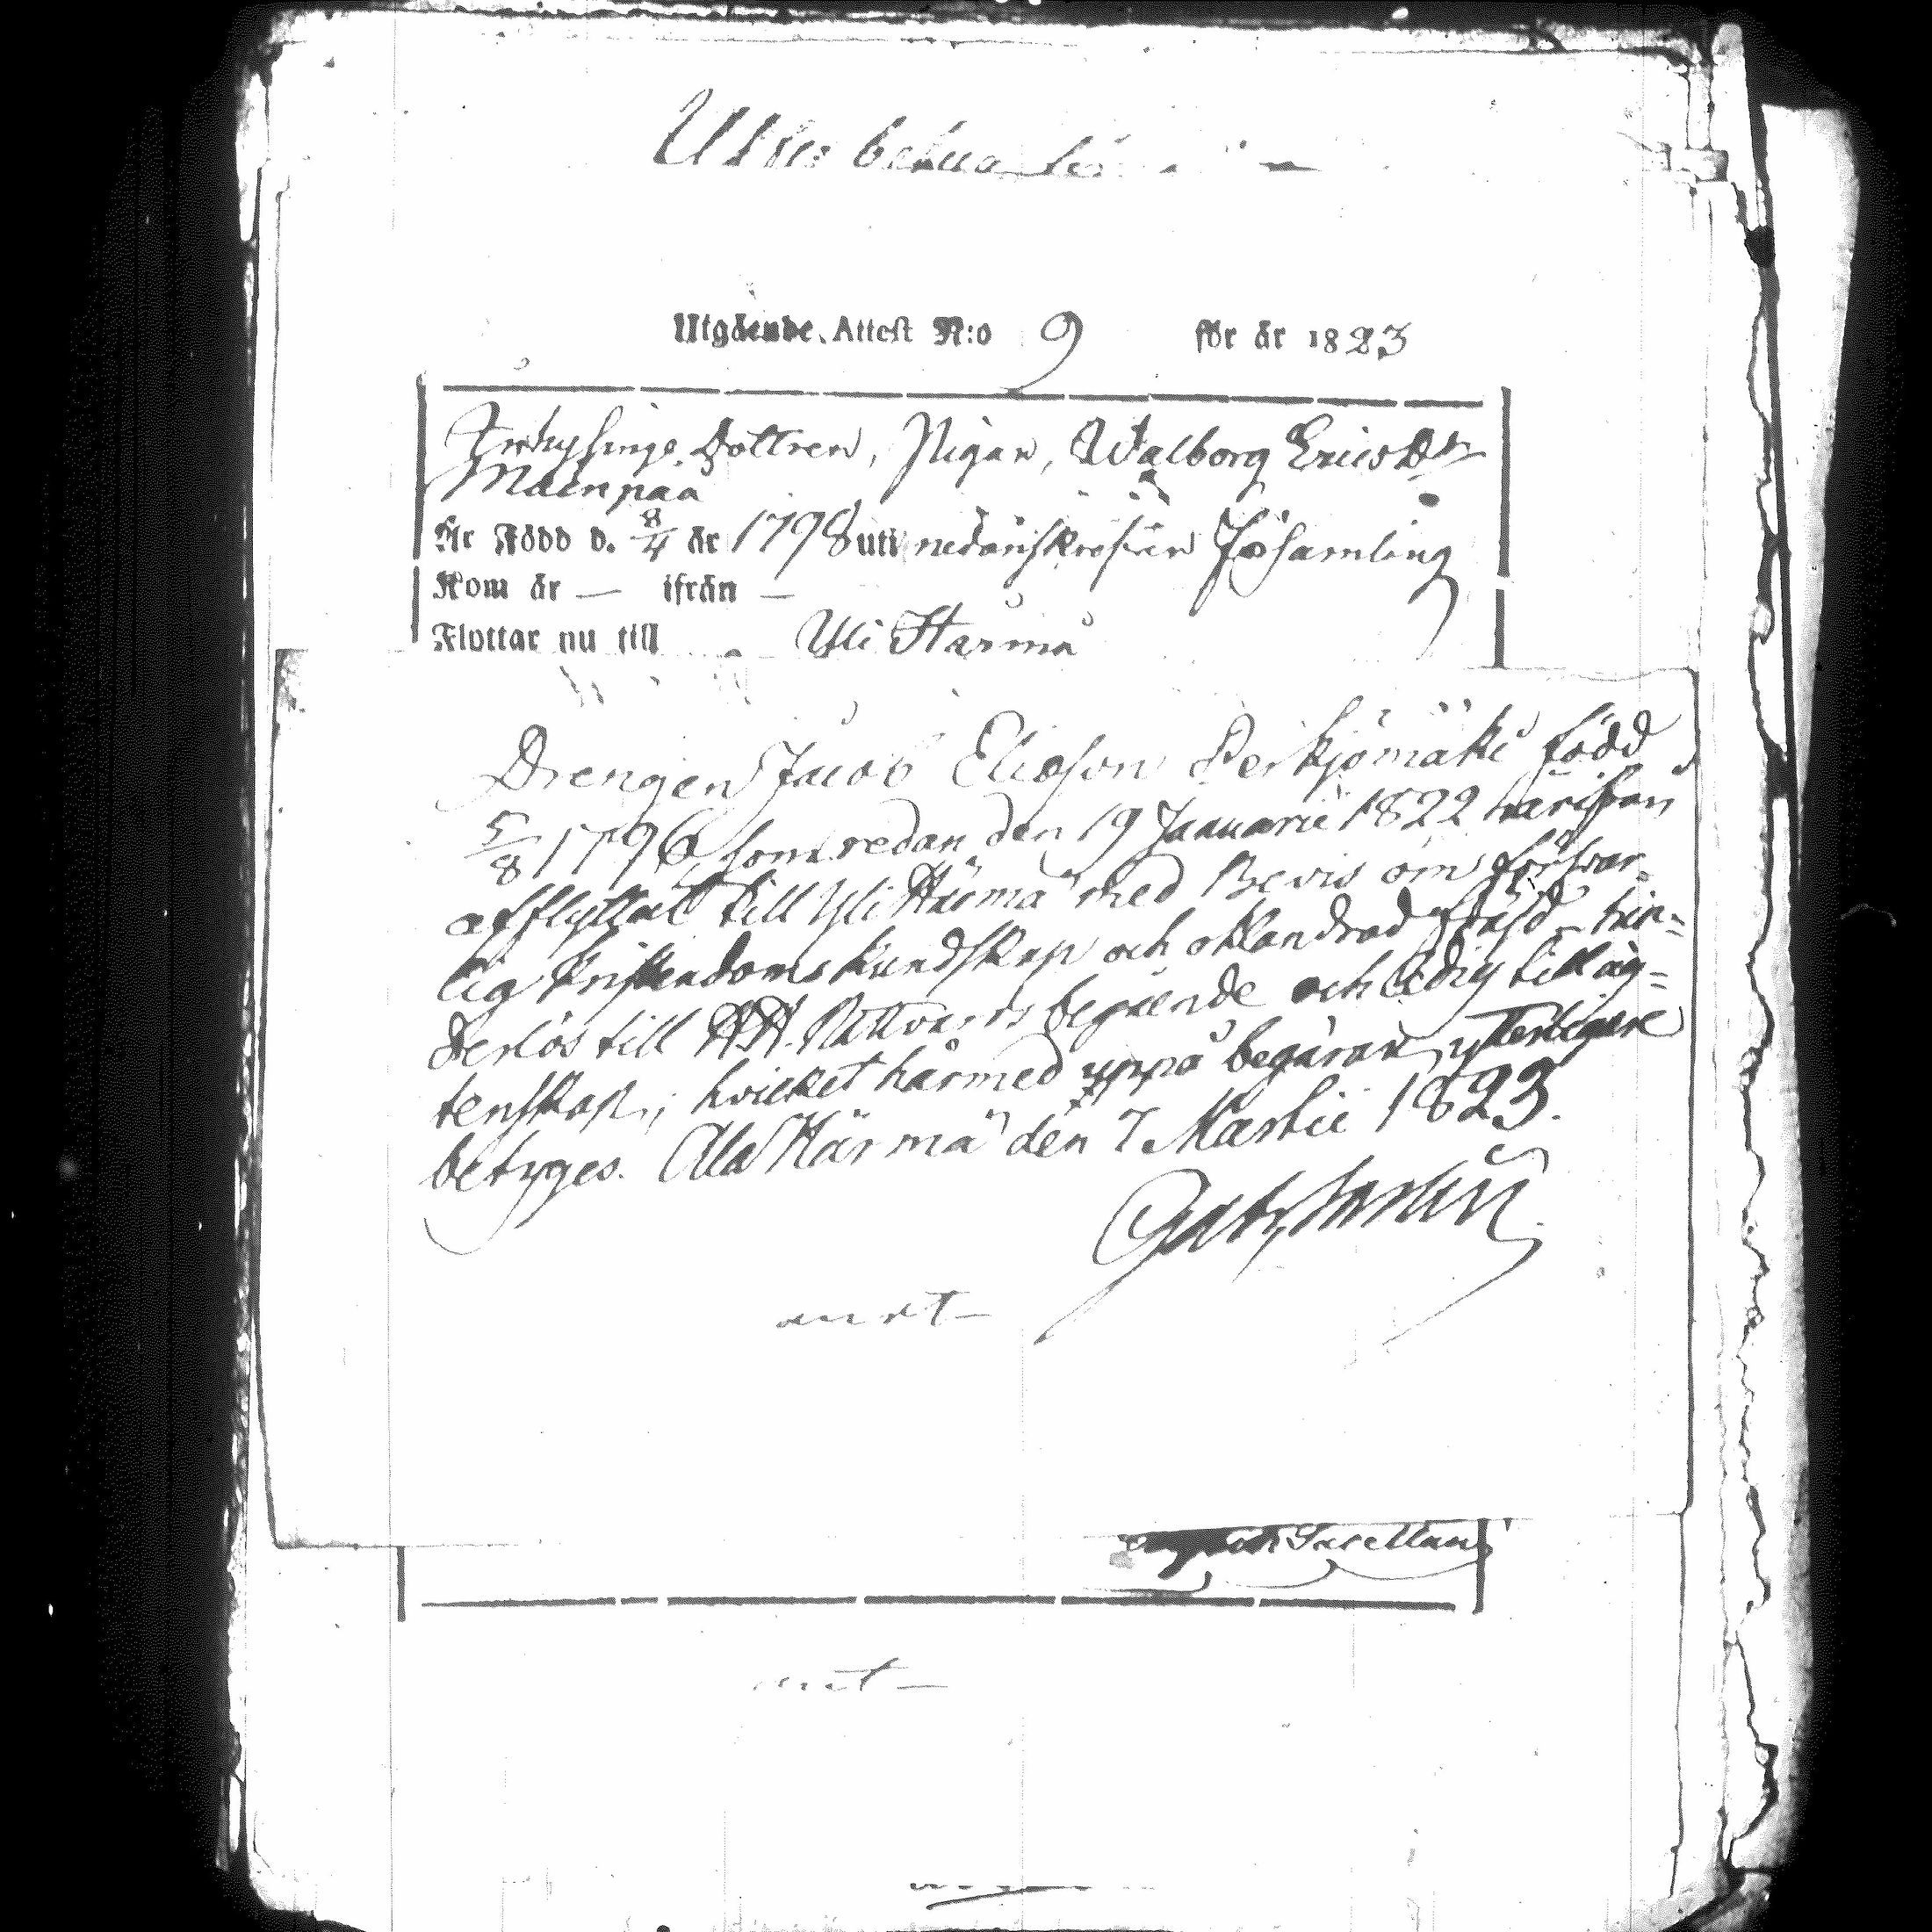 Utgående Attest N:o 9 för år 1823
Dottren, Pigan, Walborg Ericsdr
Mäenpää
Är Född d. 8/4 år 1798 uti nedanskrefven Församling
Kom år — ifrån —
Flyttar nu till Yli Härmä
Drengen Jacob Eliæson Perkjömäki född
5/8 1796, som redan den 19 Januarii 1822 härifrån
afflyttat till Yli Härmä med Bevis om försvar-
lig kristendoms kundskap och oklandrad fräjd – hin-
derlös till HH. Nattvards begående och ledig till äg-
tenskap; hvilket härmed uppå begäran ytterligare
betyges. Ala Härmä den 7 Martii 1823.